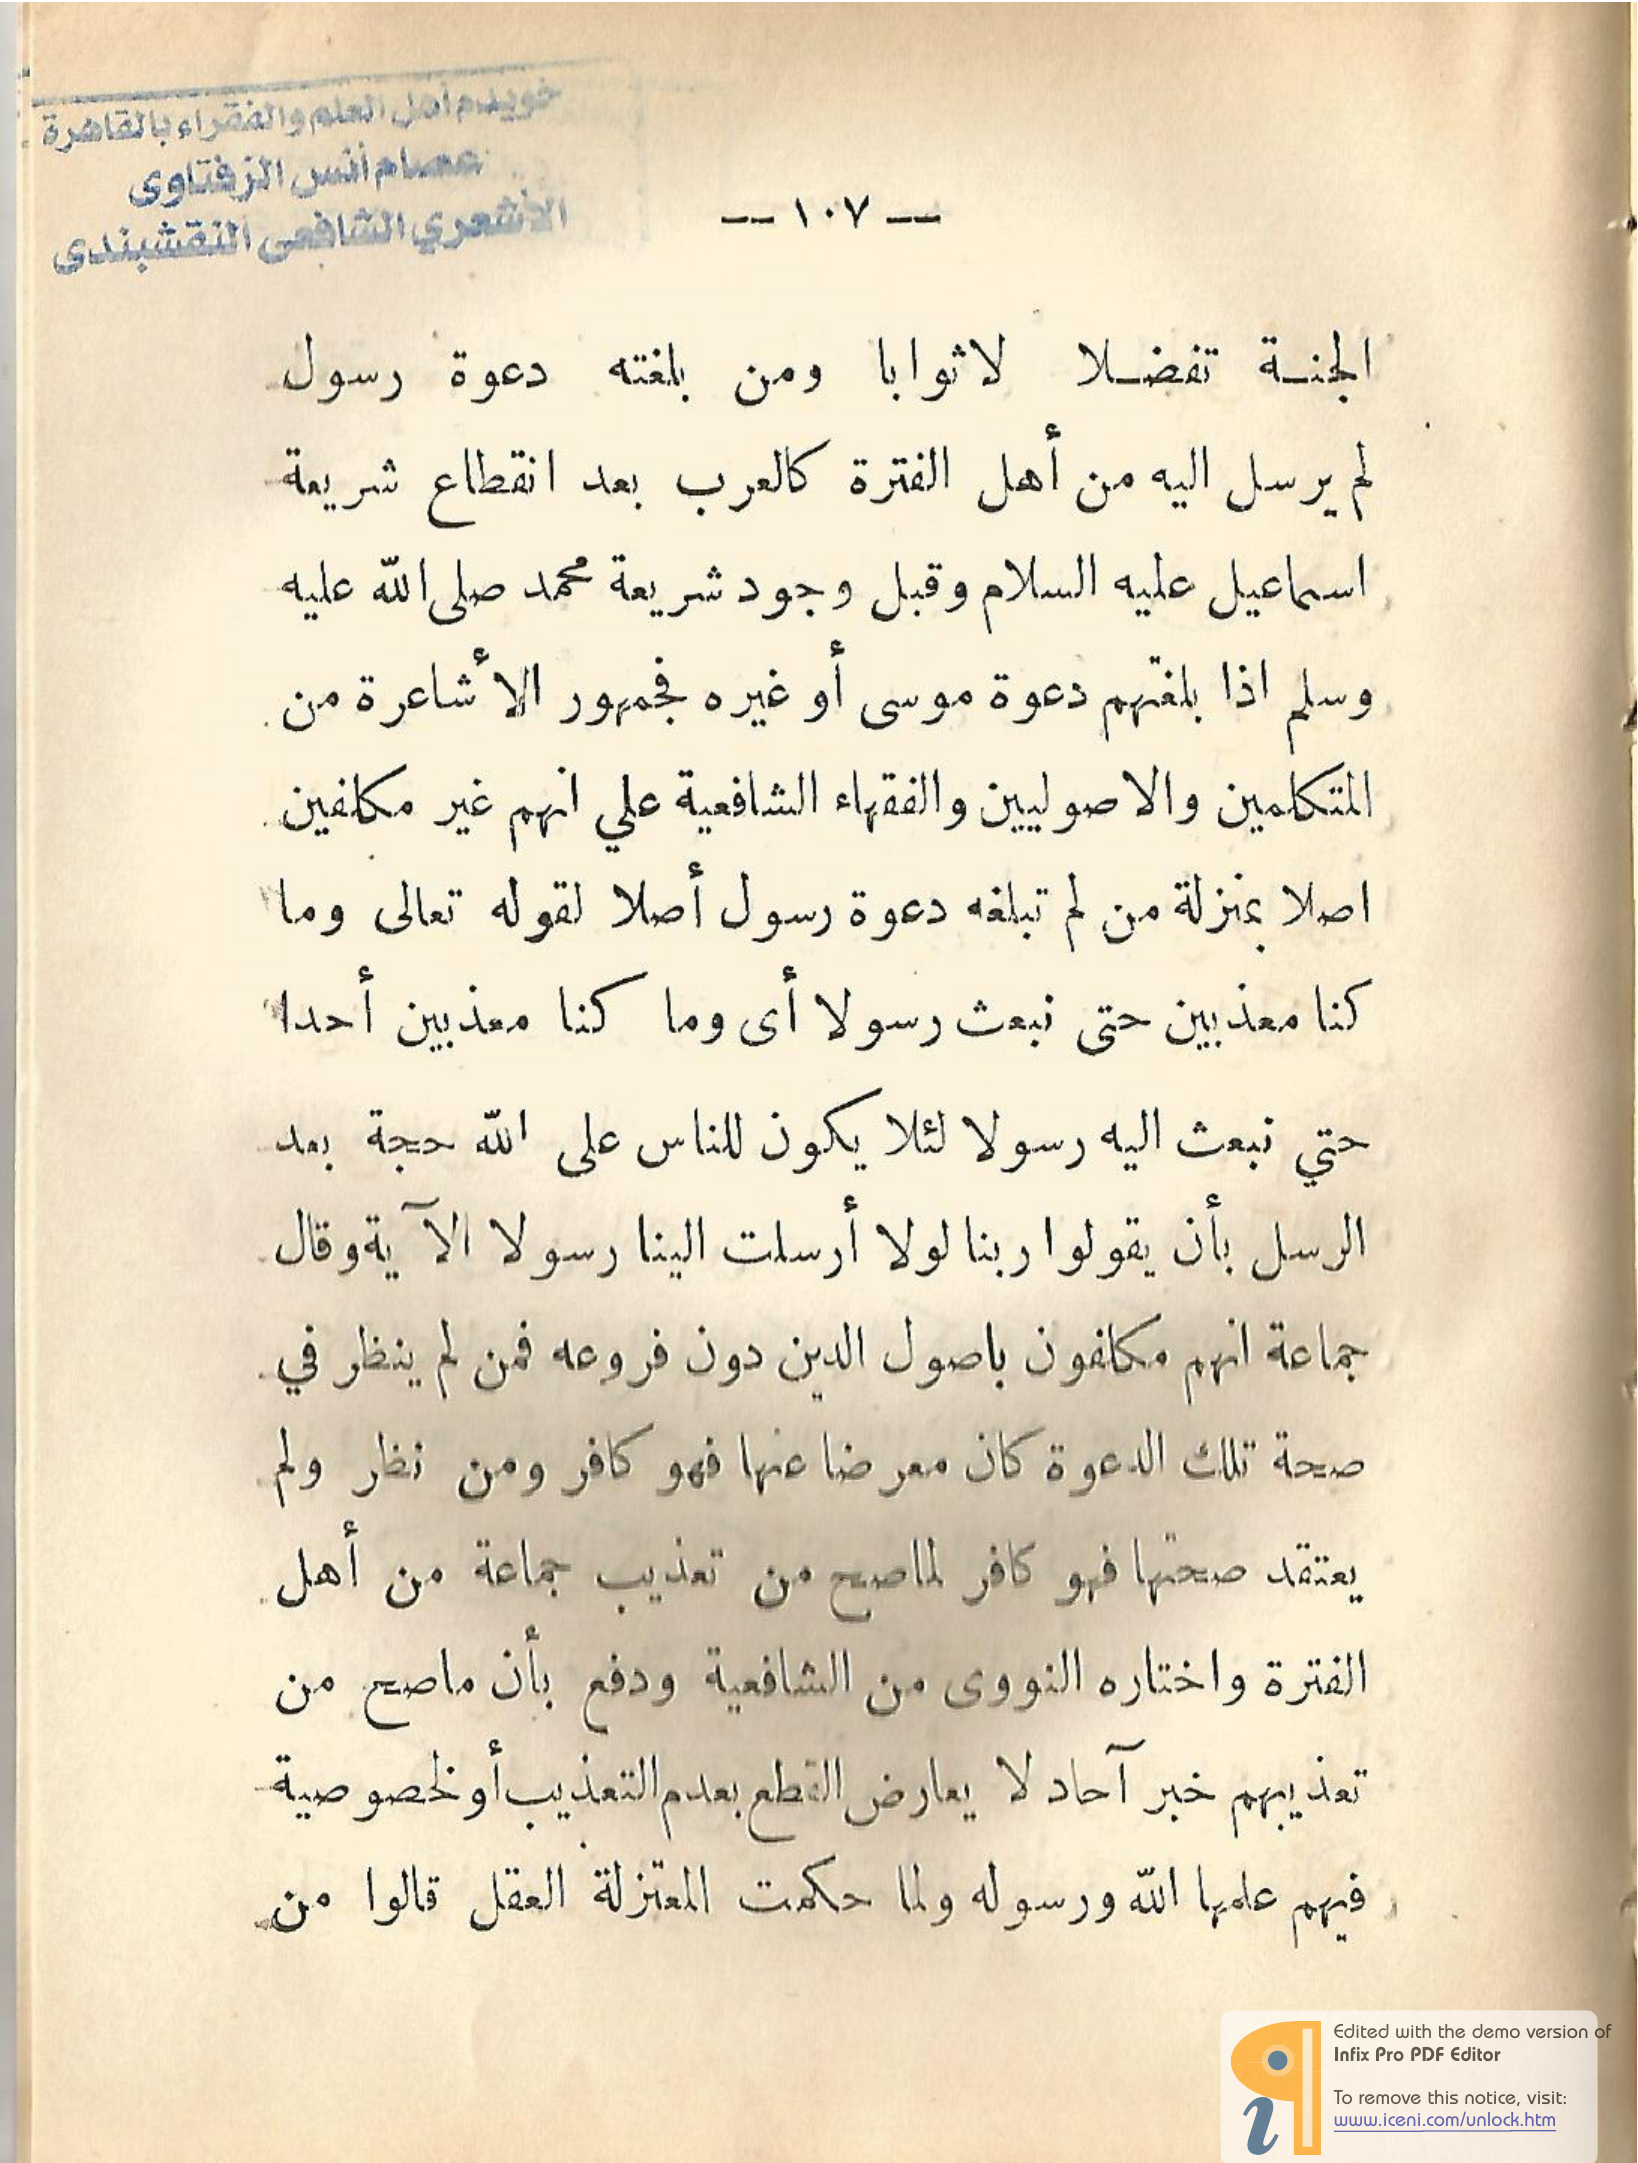 خويدم أهل العلم والفقراء بالقاهرة
عصام أنس الزفتاوى
الأشعري الشافعى النقشبندى
— ١٠٧ —
الجنـة تفضـلا لاثوابا ومن بلغته دعوة رسول
لم يرسل اليه من أهل الفترة كالعرب بعد انقطاع شريعة
اسماعيل عليه السلام وقبل وجود شريعة محمد صلى الله عليه
وسلم اذا بلغتهم دعوة موسى أو غيره فجمهور الأشاعرة من
المتكلمين والاصوليين والفقهاء الشافعية علي انهم غير مكلفين
اصلا بمنزلة من لم تبلغه دعوة رسول أصلا لقوله تعالى وما
كنا معذبين حتى نبعث رسولا أى وما كنا معذبين أحدا
حتي نبعث اليه رسولا لئلا يكون للناس على الله حجة بعد
الرسل بأن يقولوا ربنا لولا أرسلت الينا رسولا الآية وقال
جماعة انهم مكلفون باصول الدين دون فروعه فمن لم ينظر في
صحة تلك الدعوة كان معرضا عنها فهو كافر ومن نظر ولم
يعتقد صحتها فهو كافر لماصح من تعذيب جماعة من أهل
الفترة واختاره النووى من الشافعية ودفع بأن ماصح من
تعذيبهم خبر آحاد لا يعارض القطع بعدم التعذيب أو لخصوصية
فيهم علمها الله ورسوله ولما حكمت المعتزلة العقل قالوا من
Edited with the demo version of
Infix Pro PDF Editor
To remove this notice, visit:
www.iceni.com/unlock.htm